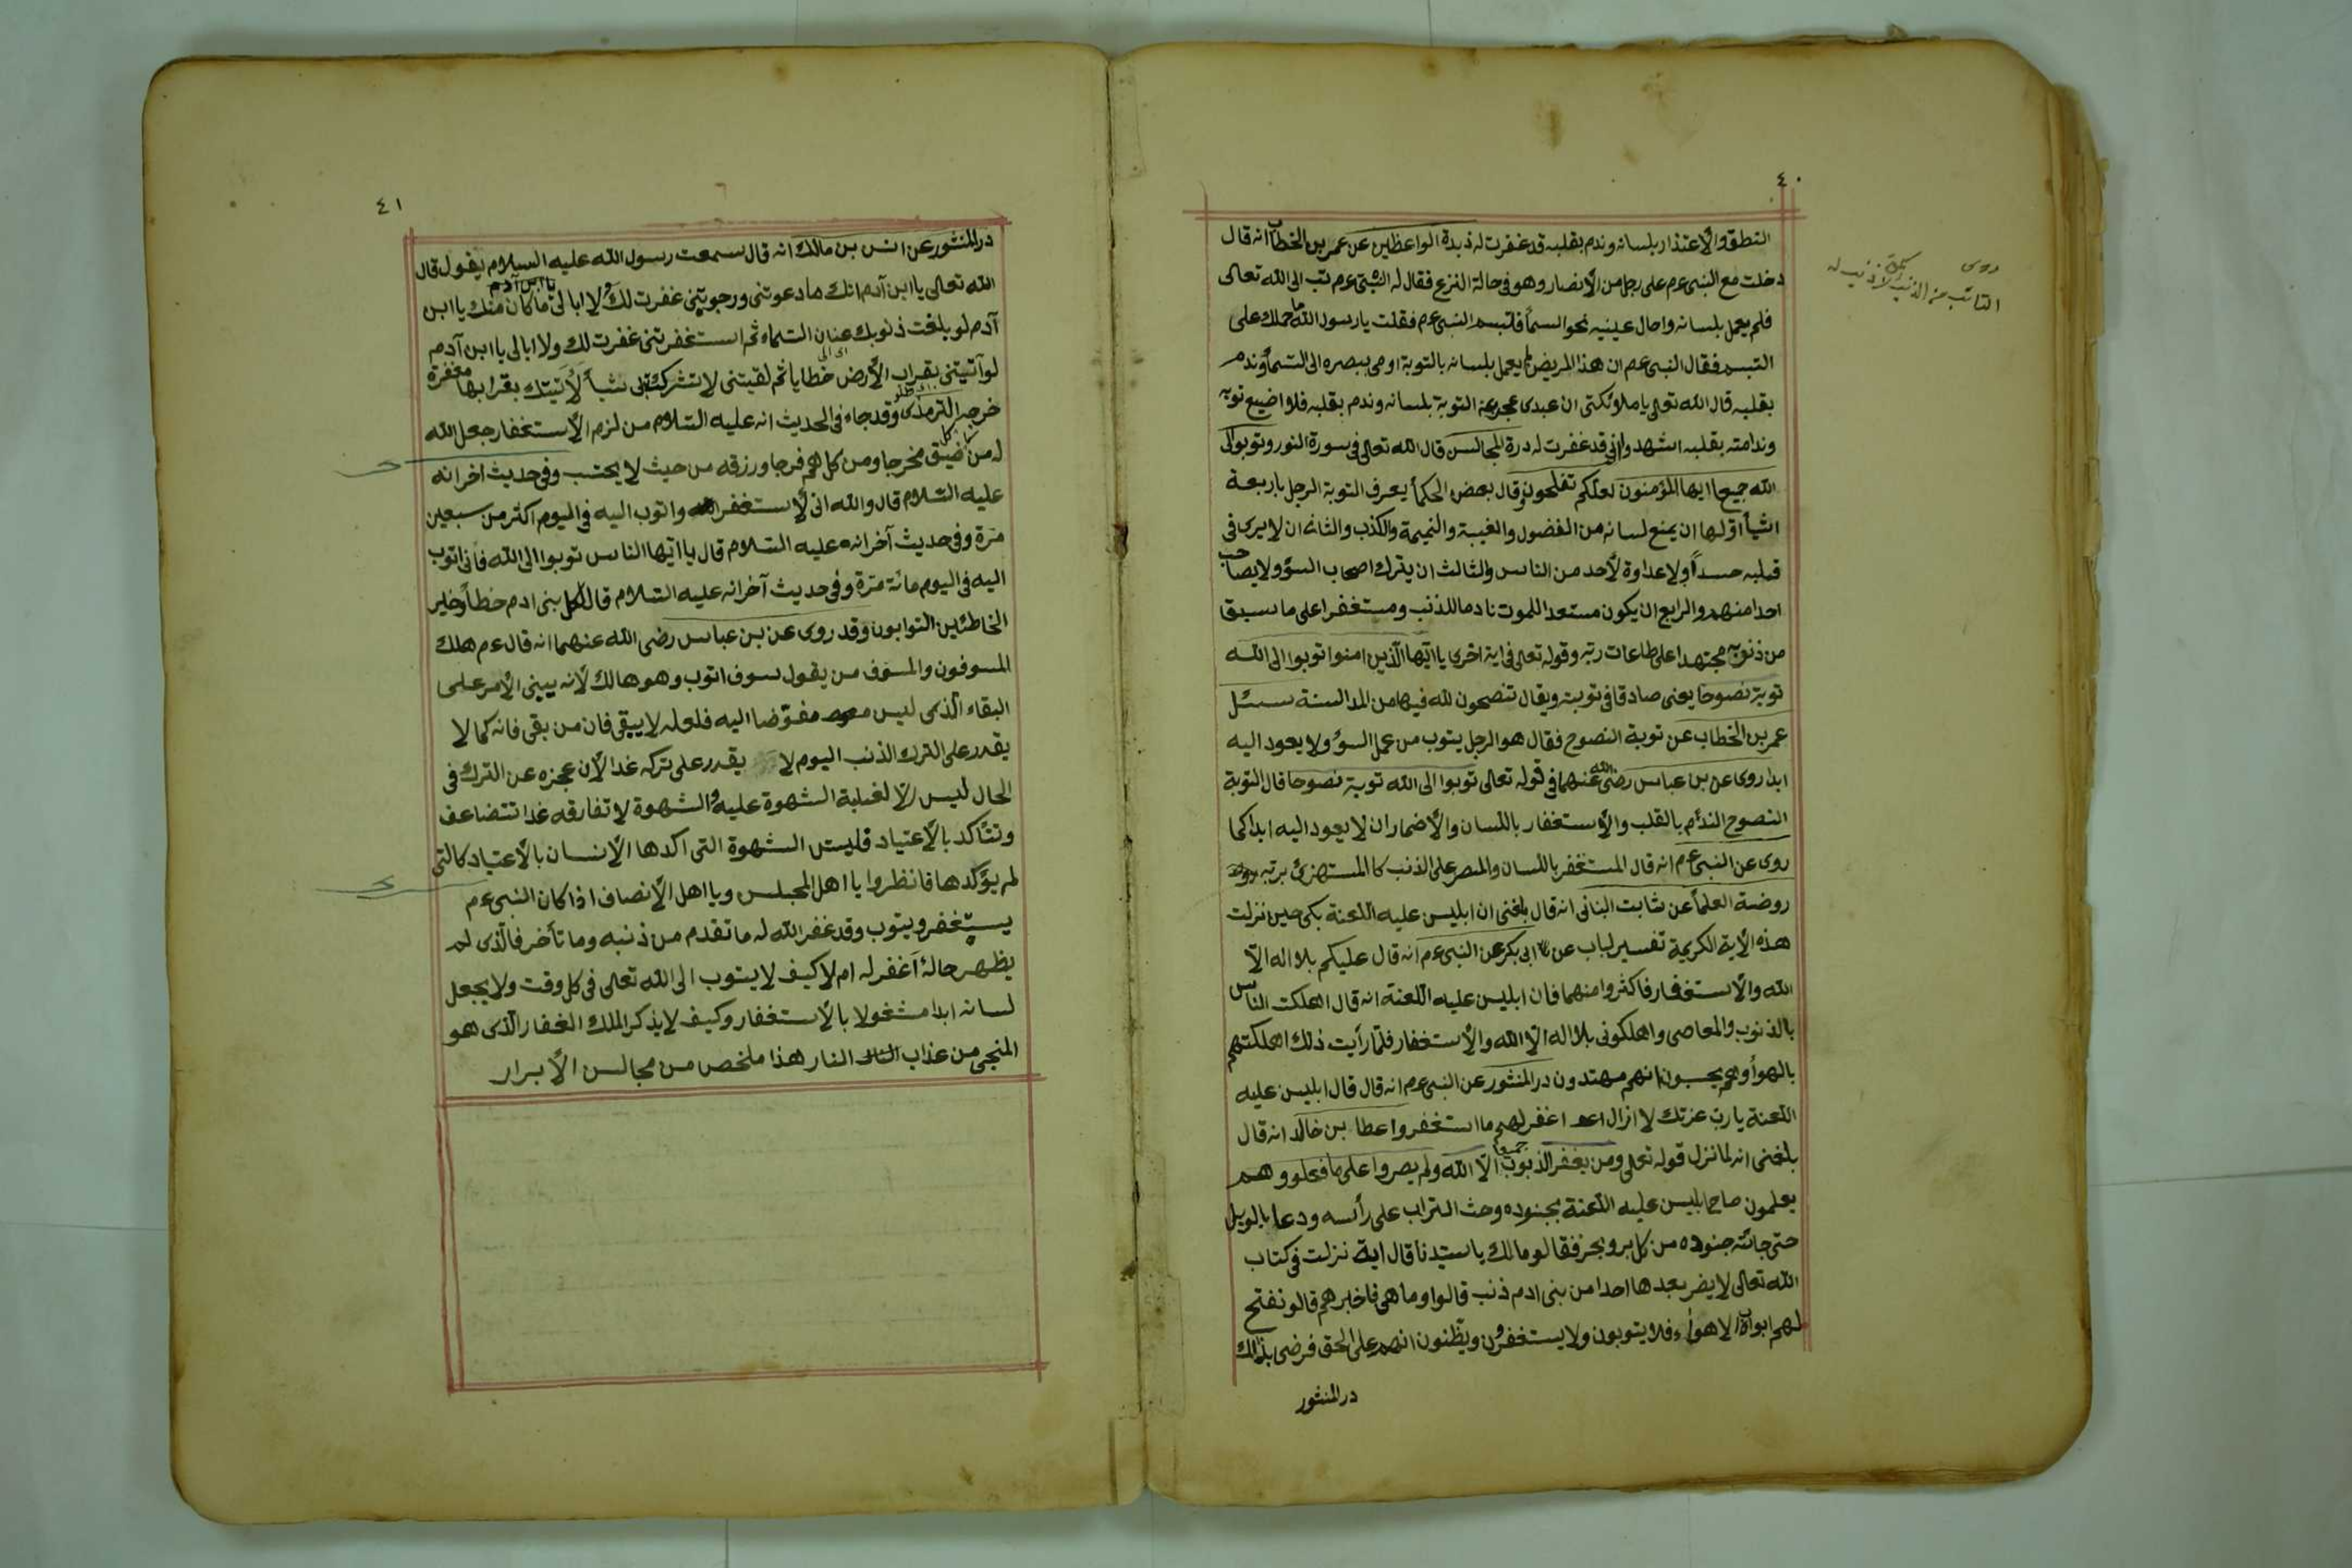 ٤٠
النطق والأعتذار بلسانه وندم بقلبه قد غفرت له زبدة الواعظين عن عمر بن الخطاب انه قال
دخلت مع النبى عم على رجل من الأنصار وهو فى حالة النزع فقال له النبى عم تب الى الله تعالى
فلم يعمل بلسانه واحال عينيه نحو السمأ فتبسم النبى عم فقلت يا رسول الله ما حملك على
التبسم فقال النبى عم ان هذا المريض لم يعمل بلسانه بالتوبة اومى ببصره الى السمأ وندم
بقلبه قال الله تعالى يا ملائكتى ان عبدى عجز عن التوبة بلسانه وندم بقلبه فلا اضيع توبه
وندامته بقلبه اشهدوا انى قد غفرت له درة المجالس قال الله تعالى فى سورة النور وتوبوا الى
الله جميعا ايها المؤمنون لعلكم تفلحون وقال بعض الحكمأ يعرف التوبة الرجل باربعة
اشيأ اولها ان يمنع لسانه من الفضول والغيبة والنميمة والكذب والثانى ان لا يرى فى
قلبه حسداً ولا عداوة لأحد من الناس والثالث ان يترك اصحاب السوٓ ولا يصاحب
احدا منهم والرابع ان يكون مستعدا للموت نادما للذنب ومستغفرا على ما سبقا
من ذنوبه مجتهدا على طاعات ربه وقوله تعالى فى اية اخرى يا ايها الذين امنوا توبوا الى الله
توبة نصوحا يعنى صادقا فى توبته ويقال تنصحون لله فيها من المدالسنة سئل
عمر بن الخطاب عن توبة النصوح فقال هو الرجل يتوب من عمل السوٓ ولا يعود اليه
ابدا روى عن بن عباس رضى الله عنهما فى قوله تعالى توبوا الى الله توبة نصوحا قال التوبة
النصوح الندم بالقلب والأستغفار باللسان والأضمار ان لا يعود اليه ابدا كما
روى عن النبى عم انه قال المستغفر باللسان والمصر على الذنب كا المستهزئ بربه
روضة العلمأ عن ثابت البنانى انه قال بلغنى ان ابليس عليه اللعنة بكى حين نزلت
هذه الأية الكريمة تفسير لباب عن ابى بكر عن النبى عم انه قال عليكم بلا اله الّا
الله والأستغفار فاكثروا منهما فان ابليس عليه اللعنة انه قال اهلكت الناس
بالذنوب والمعاصى واهلكونى بلا اله الّا الله والأستغفار فلمّا رأيت ذلك اهلكتهم
بالهوأ وهم يحسبون انهم مهتدون در المنثور عن النبى عم انه قال قال ابليس عليه
اللعنة يا رب عزتك لا ازال اغفر لهم ما استغفروا عطا بن خالد انه قال
بلغنى انه لما نزل قوله تعالى ومن يغفر الذنوب جميعا الّا الله ولم يصروا على ما فعلو وهم
يعلمون صاح ابليس عليه اللعنة بجنوده وحث التراب على رأسه ودعا بالويل
حتى جائته جنوده من كل بر وبحر فقالو مالك يا سيدنا قال اية نزلت فى كتاب
الله تعالى لا يضر بعدها احدا من بنى ادم ذنب قالوا وما هى فاخبرهم قالو نفتح
لهم ابواب الاهواء فلا يتوبون ولا يستغفرون ويظنون انهم على الحق فرضى بذلك
در المنثور
روى
التائب من الذنب كمن لا ذنب له
٤١
در المنثور عن انس بن مالك انه قال سمعت رسول الله عليه السلام يقول قال
الله تعالى يا ابن آدم انك ما دعوتنى ورجوتنى غفرت لك ولا ابالى ما كان منك يا ابن
يا ابن آدم
آدم لو بلغت ذنوبك عنان السماء ثم استغفرتنى غفرت لك ولا ابالى يا ابن آدم
لو آتيتنى بقراب الأرض خطايا ثم لقيتنى لا تشرك بى شيأ لأتيتك بقرابها مغفرة
خرجه الترمذى وقد جاء فى الحديث انه عليه السلام من لزم الأستغفار جعل الله
له من كل ضيق مخرجا ومن كل هم فرجا ورزقه من حيث لا يحتسب وفى حديث اخر انه
عليه السلام قال والله انى لأستغفر الله واتوب اليه فى اليوم اكثر من سبعين
مرّة وفى حديث آخر انه عليه السلام قال يا ايها الناس توبوا الى الله فأنى اتوب
اليه فى اليوم مائة مرّة وفى حديث آخر انه عليه السلام قال كل بنى ادم خطأ وخير
الخاطئين التوابون وقد روى عن بن عباس رضى الله عنهما انه قال عم هلك
المسوفون والمسوف من يقول سوف اتوب وهو هالك لأنه يبنى الأمر على
البقاء الّذى ليس مفوّضا اليه فلعله لا يبقى فان من بقى فانه كما لا
يقدر على الترك الذنب اليوم لا يقدر على تركه غدا لأن عجزه عن الترك فى
الحال ليس الّا لغلبة الشهوة عليه والشهوة لا تفارقه غدا تتضاعف
وتتأكد بالأعتياد فليس الشهوة التى اكدها الأنسان بالأعتياد كالتى
لم يؤكدها فانظروا يا اهل المجلس ويا اهل الأنصاف اذا كان النبى عم
يستغفر ويتوب وقد غفر الله له ما تقدم من ذنبه وما تأخر فالّذى لم
يظهر حالهٔ اَغفر له ام لا كيف لا يتوب الى الله تعالى فى كل وقت ولا يجعل
لسانه ابدا مشغولا بالأستغفار وكيف لا يذكر الملك الغفار الّذى هو
المنجى من عذاب النار هذا ملخص من مجالس الأبرار